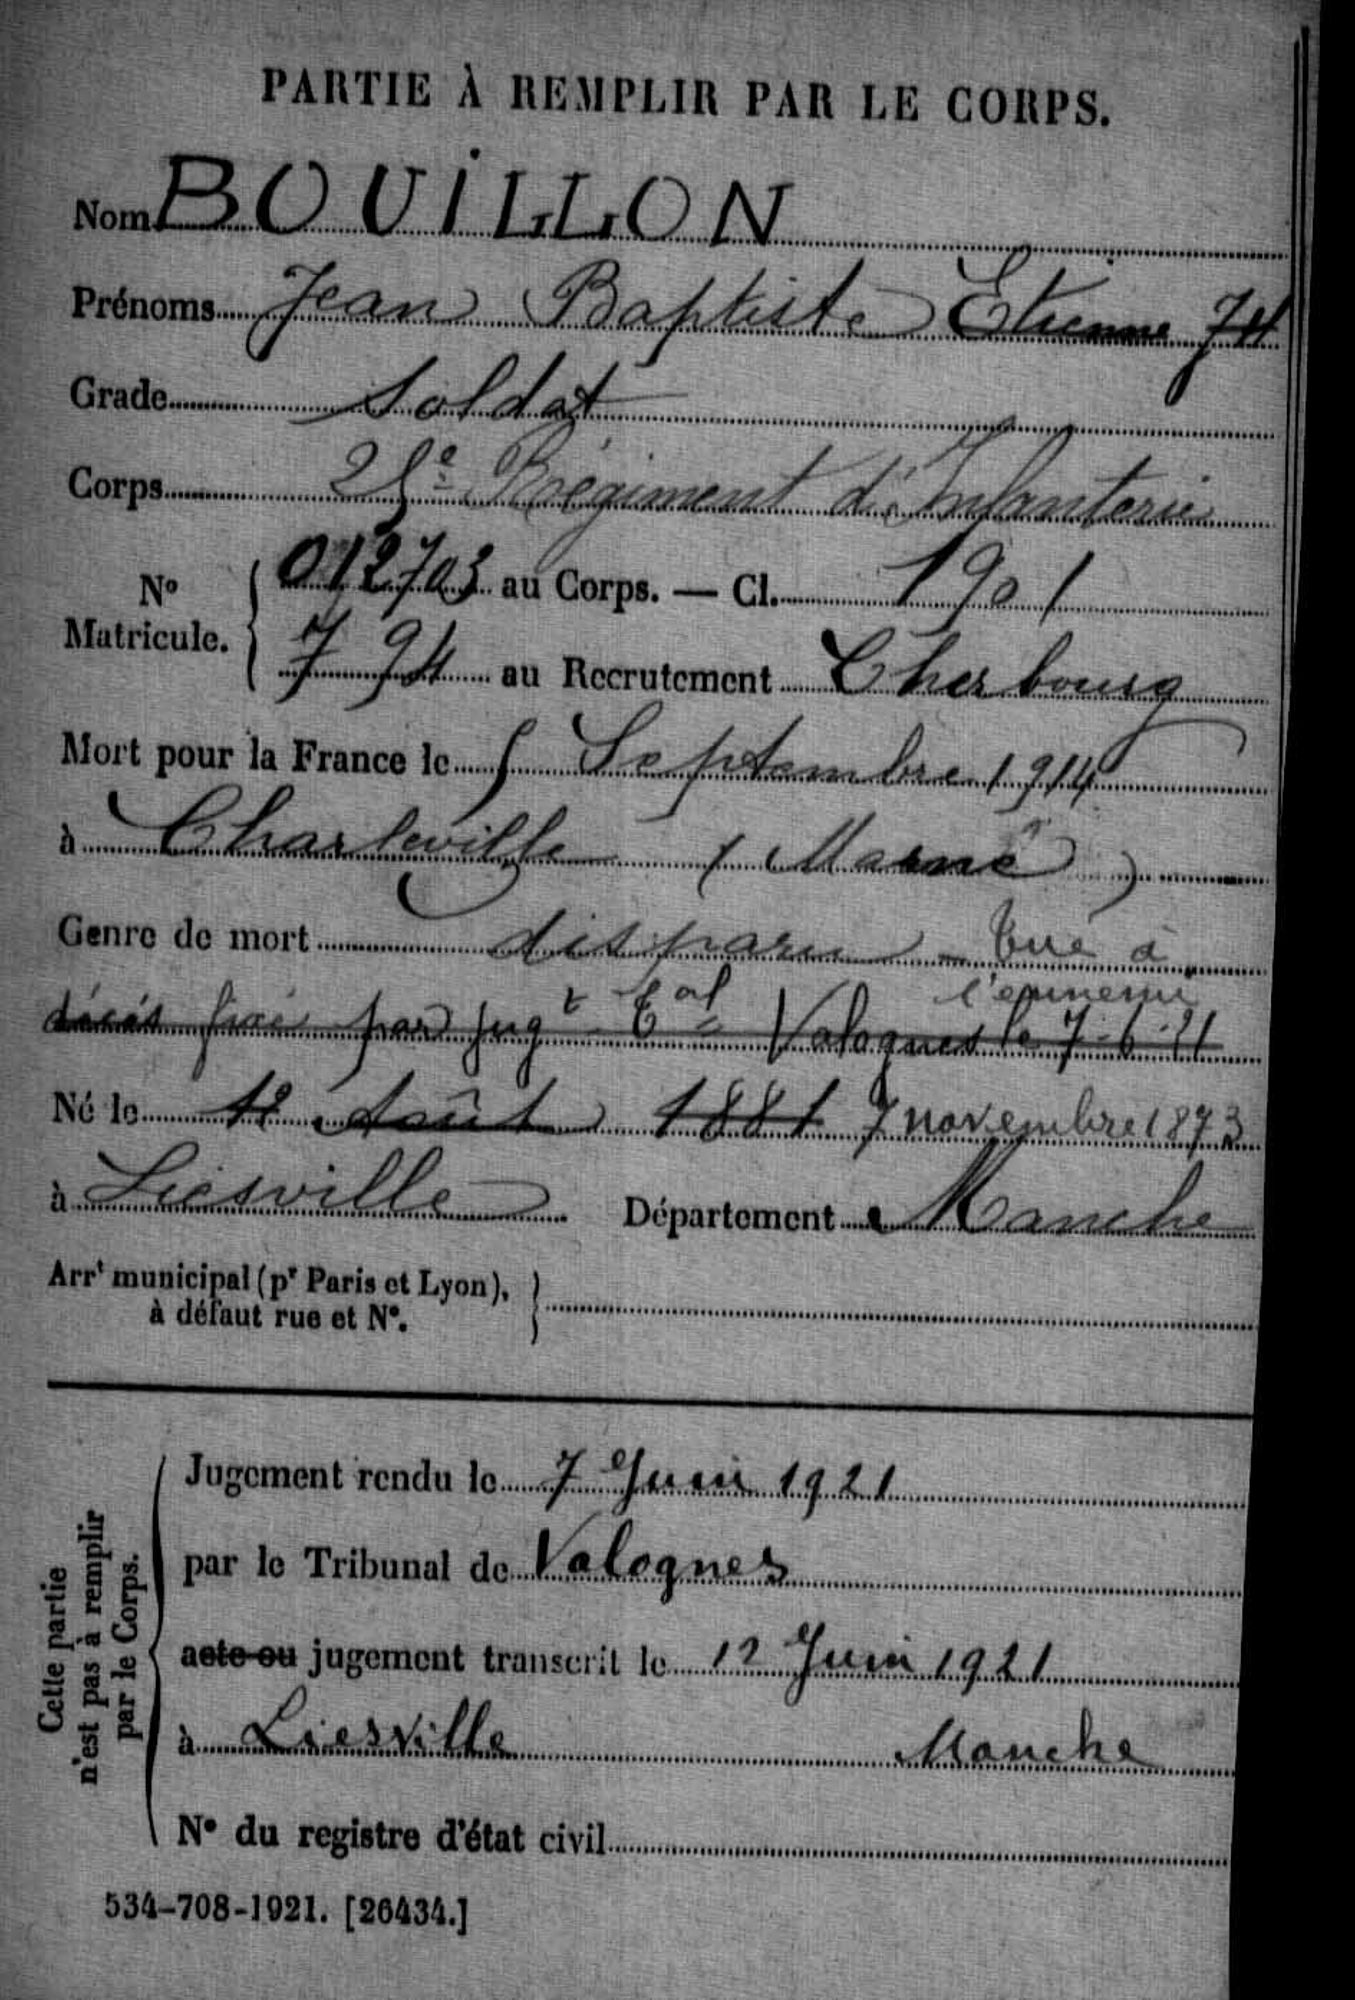 PARTIE À REMPLIR PAR LE CORPS.
Nom BOUILLON
Prénoms Jean Baptiste Etienne 74
Grade Soldat
Corps 25e Régiment d'Infanterie
No Matricule. 012703 au Corps. — Cl. 1901
794 au Recrutement Cherbourg
Mort pour la France le 5 Septembre 1914
à Charleville (Marne)
Genre de mort disparu - tué à
l'ennemi
décés fixé par jugt Tal Valognes le 7-6-21
Né le 12 Août 1881 7 novembre 1873
à Liesville Département Manche
Arrt municipal (pr Paris et Lyon),
à défaut rue et No.
Cette partie
n'est pas à remplir
par le Corps.
Jugement rendu le 7 Juin 1921
par le Tribunal de Valognes
acte ou jugement transcrit le 12 Juin 1921
à Liesville Manche
No du registre d'état civil
534-708-1921. [26434.]